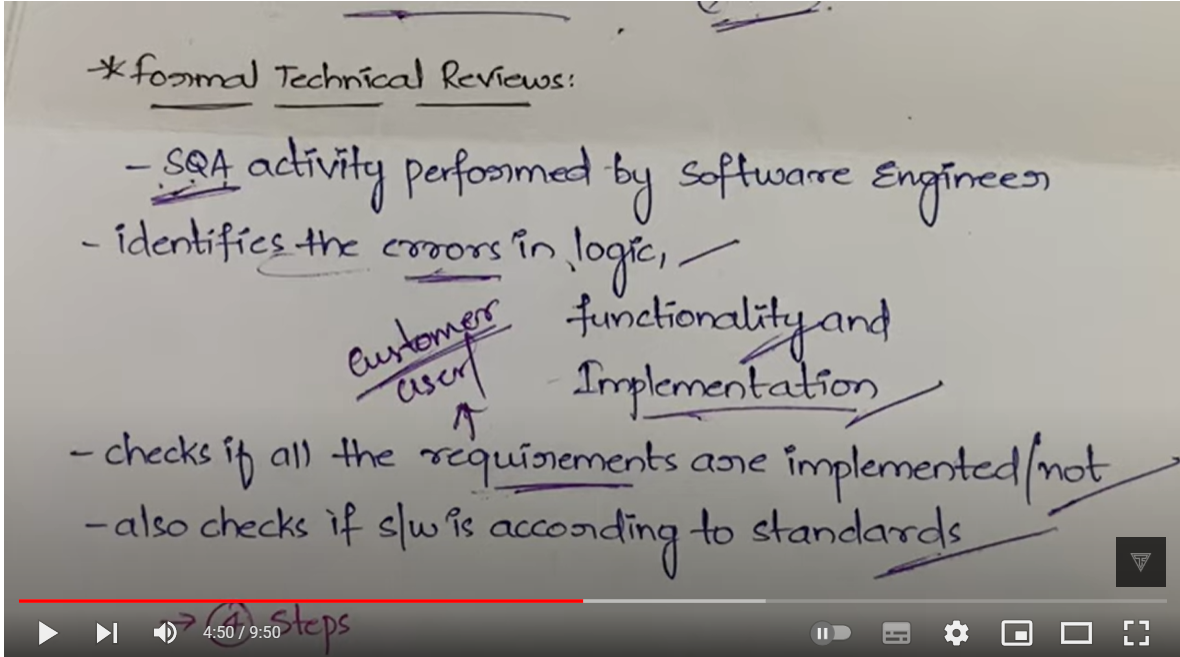 *Formal Technical Reviews:
- SQA activity performed by Software Engineer
- identifies the errors in logic,
functionality and
Implementation
customer
user
- checks if all the requirements are implemented/not
- also checks if s/w is according to standards
→ ④ Steps
4:50 / 9:50